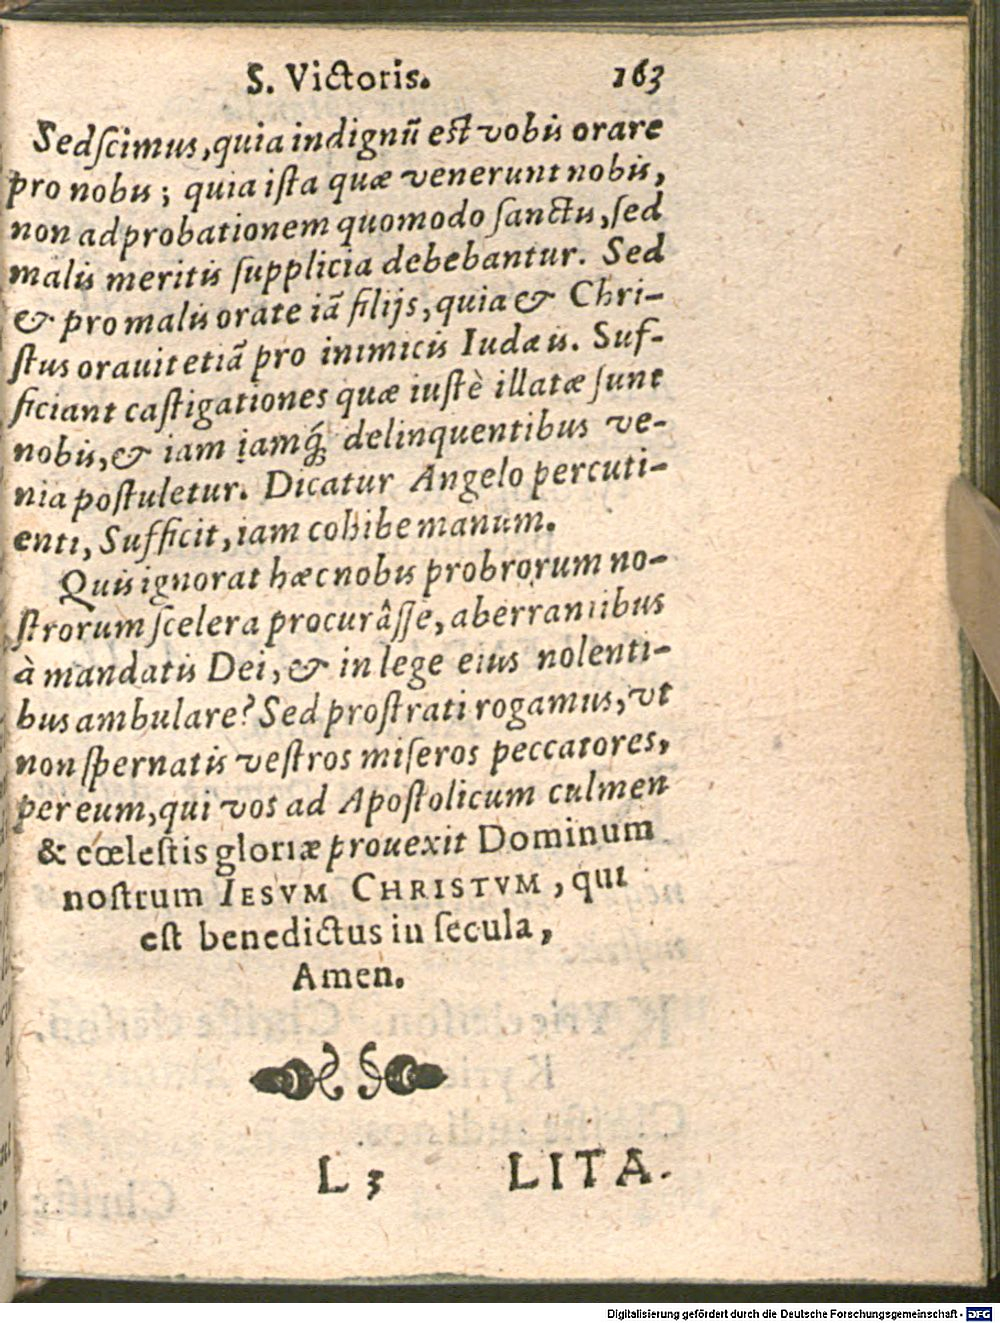 S. Victoris. 163
Sed scimus, quia indignũ est vobis orare
pro nobis; quia ista quæ venerunt nobis,
non ad probationem quomodo sanctis, sed
malis meritis supplicia debebantur. Sed
& pro malis orate iã filijs, quia & Chri-
stus orauit etiã pro inimicis Iudæis. Suf-
ficiant castigationes quæ iustè illatæ sunt
nobis, & iam iamq́; delinquentibus ve-
nia postuletur. Dicatur Angelo percuti-
enti, Sufficit, iam cohibe manum.
Quis ignorat hæc nobis probrorum no-
strorum scelera procurâsse, aberrantibus
à mandatis Dei, & in lege eius nolenti-
bus ambulare? Sed prostrati rogamus, vt
non spernatis vestros miseros peccatores,
per eum, qui vos ad Apostolicum culmen
& cœlestis gloriæ prouexit Dominum
nostrum IESVM CHRISTVM, qui
est benedictus in secula,
Amen.
L 3 LITA.
Digitalisierung gefördert durch die Deutsche Forschungsgemeinschaft - DFG